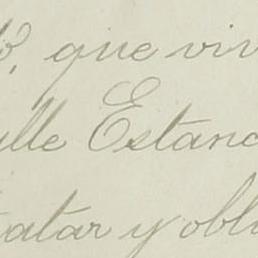 que viv
lle Estanc
atar y obl